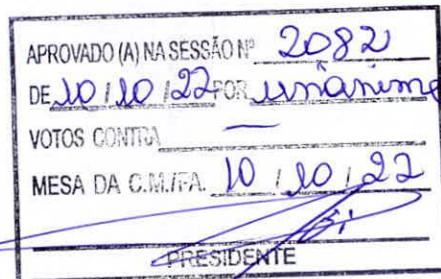 APROVADO (A) NA SESSÃO Nº 2082
DE 10 / 10 / 22 FOR unânime
VOTOS CONTRA —
MESA DA C.M./FA. 10 / 10 / 22
PRESIDENTE